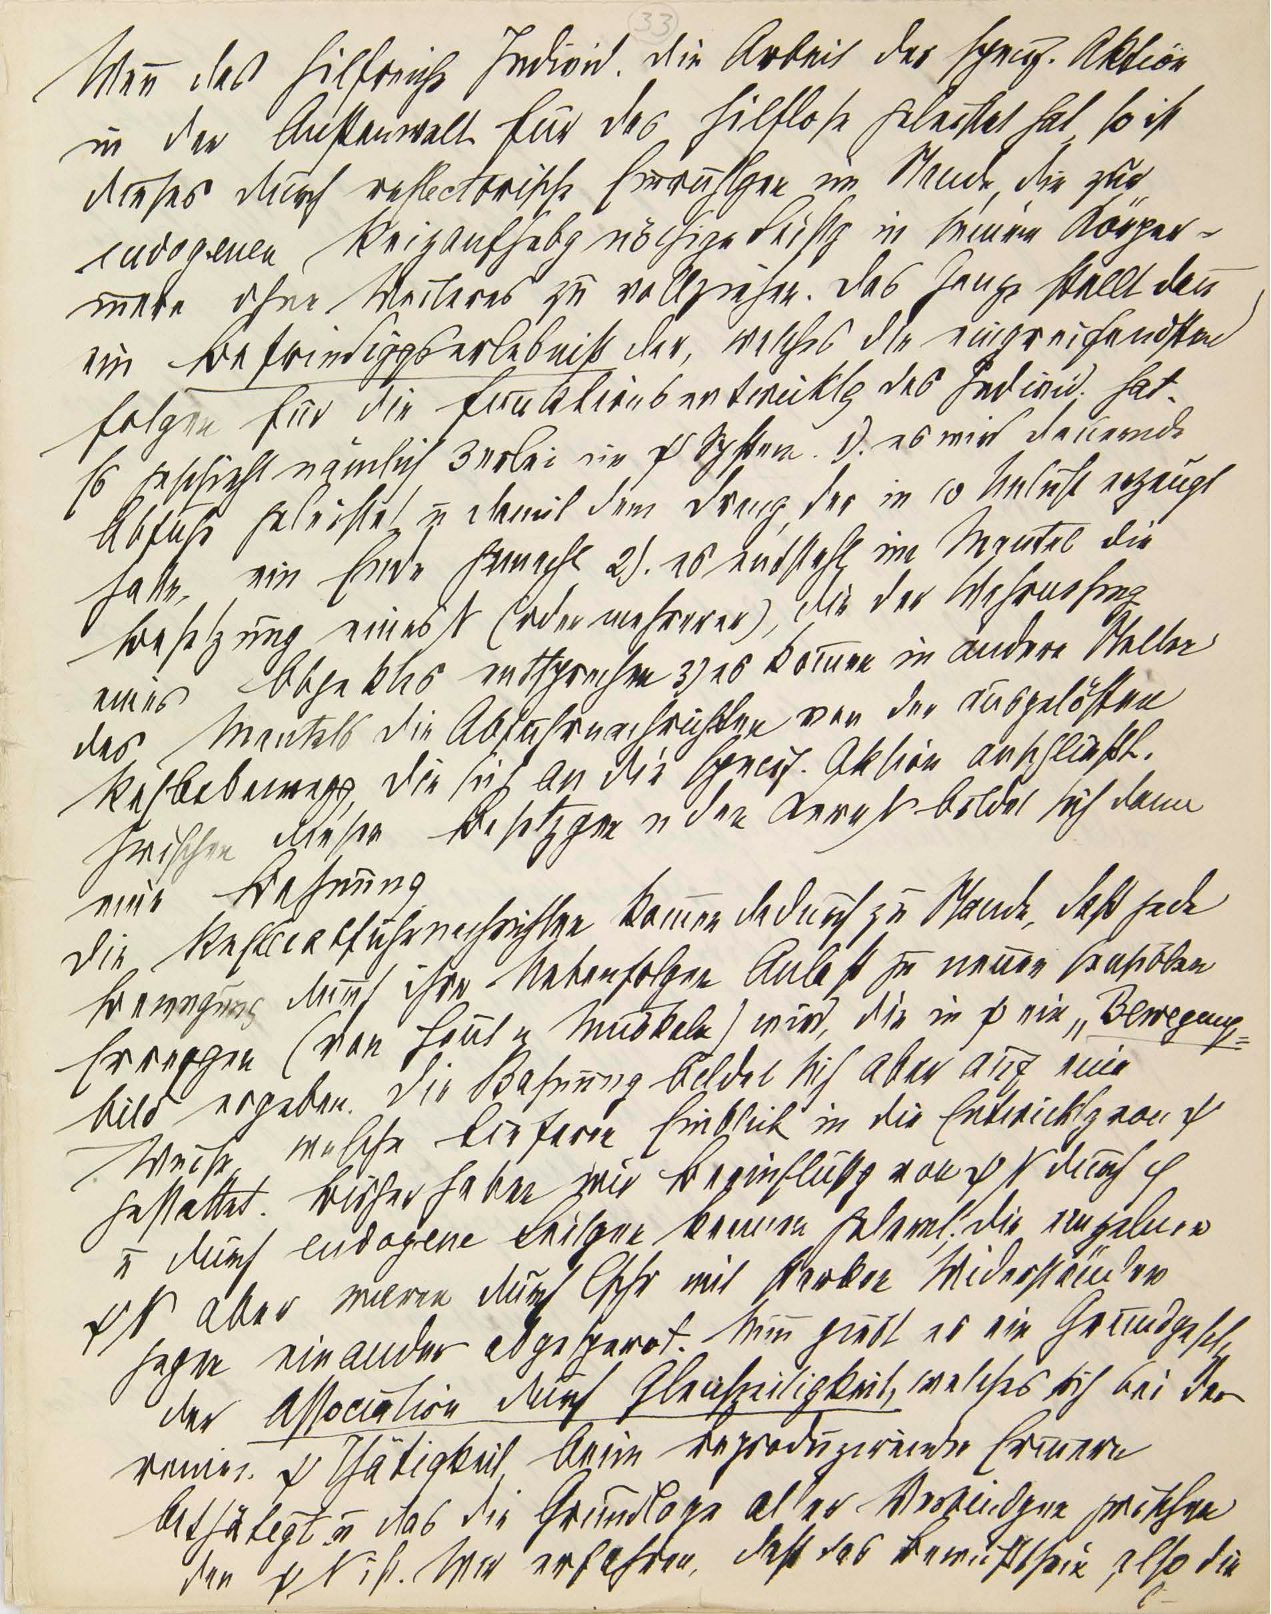 33
Wenn das hilfreiche Individ. die Arbeit der specif. Aktion
in der Außenwelt für das hilflose geleistet hat, so ist
dieses durch reflectorische Einrichtgen im Stande, die zur
endogenen Reizaufhebg nöthige Leistg in seinem Körper-
innern ohne Weiteres zu vollziehen. Das Ganze stellt dann
ein Befriedigungserlebniß dar, welches die eingreifendsten
Folgen für die Funktionsentwicklg des Individ. hat.
Es geschieht nämlich 3erlei im ψ System. 1). es wird dauernde
Abfuhr geleistet u damit dem Drang, der in ω Unlust erzeugt
hatte, ein Ende gemacht 2). es entsteht im Mantel die
Besetzung eines N (oder mehrerer), die der Wahrnehmg
eines Objektes entsprechen 3) es kom̄en in andere Stellen
des Mantels die Abfuhrnachrichten von der ausgelösten
Reflexbewegg, die sich an die specif. Aktion anschließt.
Zwischen diesen Besetzgen u den Kern N bildet sich dann
eine Bahnung.
Die Reflexabfuhrnachrichten kom̄en dadurch zu Stande, daß jede
Bewegung durch ihre Nebenfolgen Anlaß zu neuen sensiblen
Erreggen (von Haut u Muskeln) wird, die in ψ ein „Bewegungs=
bild ergeben. Die Bahnung bildet sich aber auf eine
Weise, welche tieferen Einblick in die Entwicklg von ψ
gestattet. Bisher haben wir Beeinflußg von ψ N durch φ
u durch endogene Leitgen kennen gelernt; die einzelnen
ψ N aber waren durch Cschr mit starken Widerständen
gegen einander abgesperrt. Nun giebt es ein Grundgesetz
der Association durch Gleichzeitigkeit, welches sich bei der
reinen ψ Thätigkeit, beim reproduzirenden Erinnern
bethätigt u das die Grundlage aller Verbindgen zwischen
den ψ N ist. Wir erfahren, daß das Bewußtsein also die